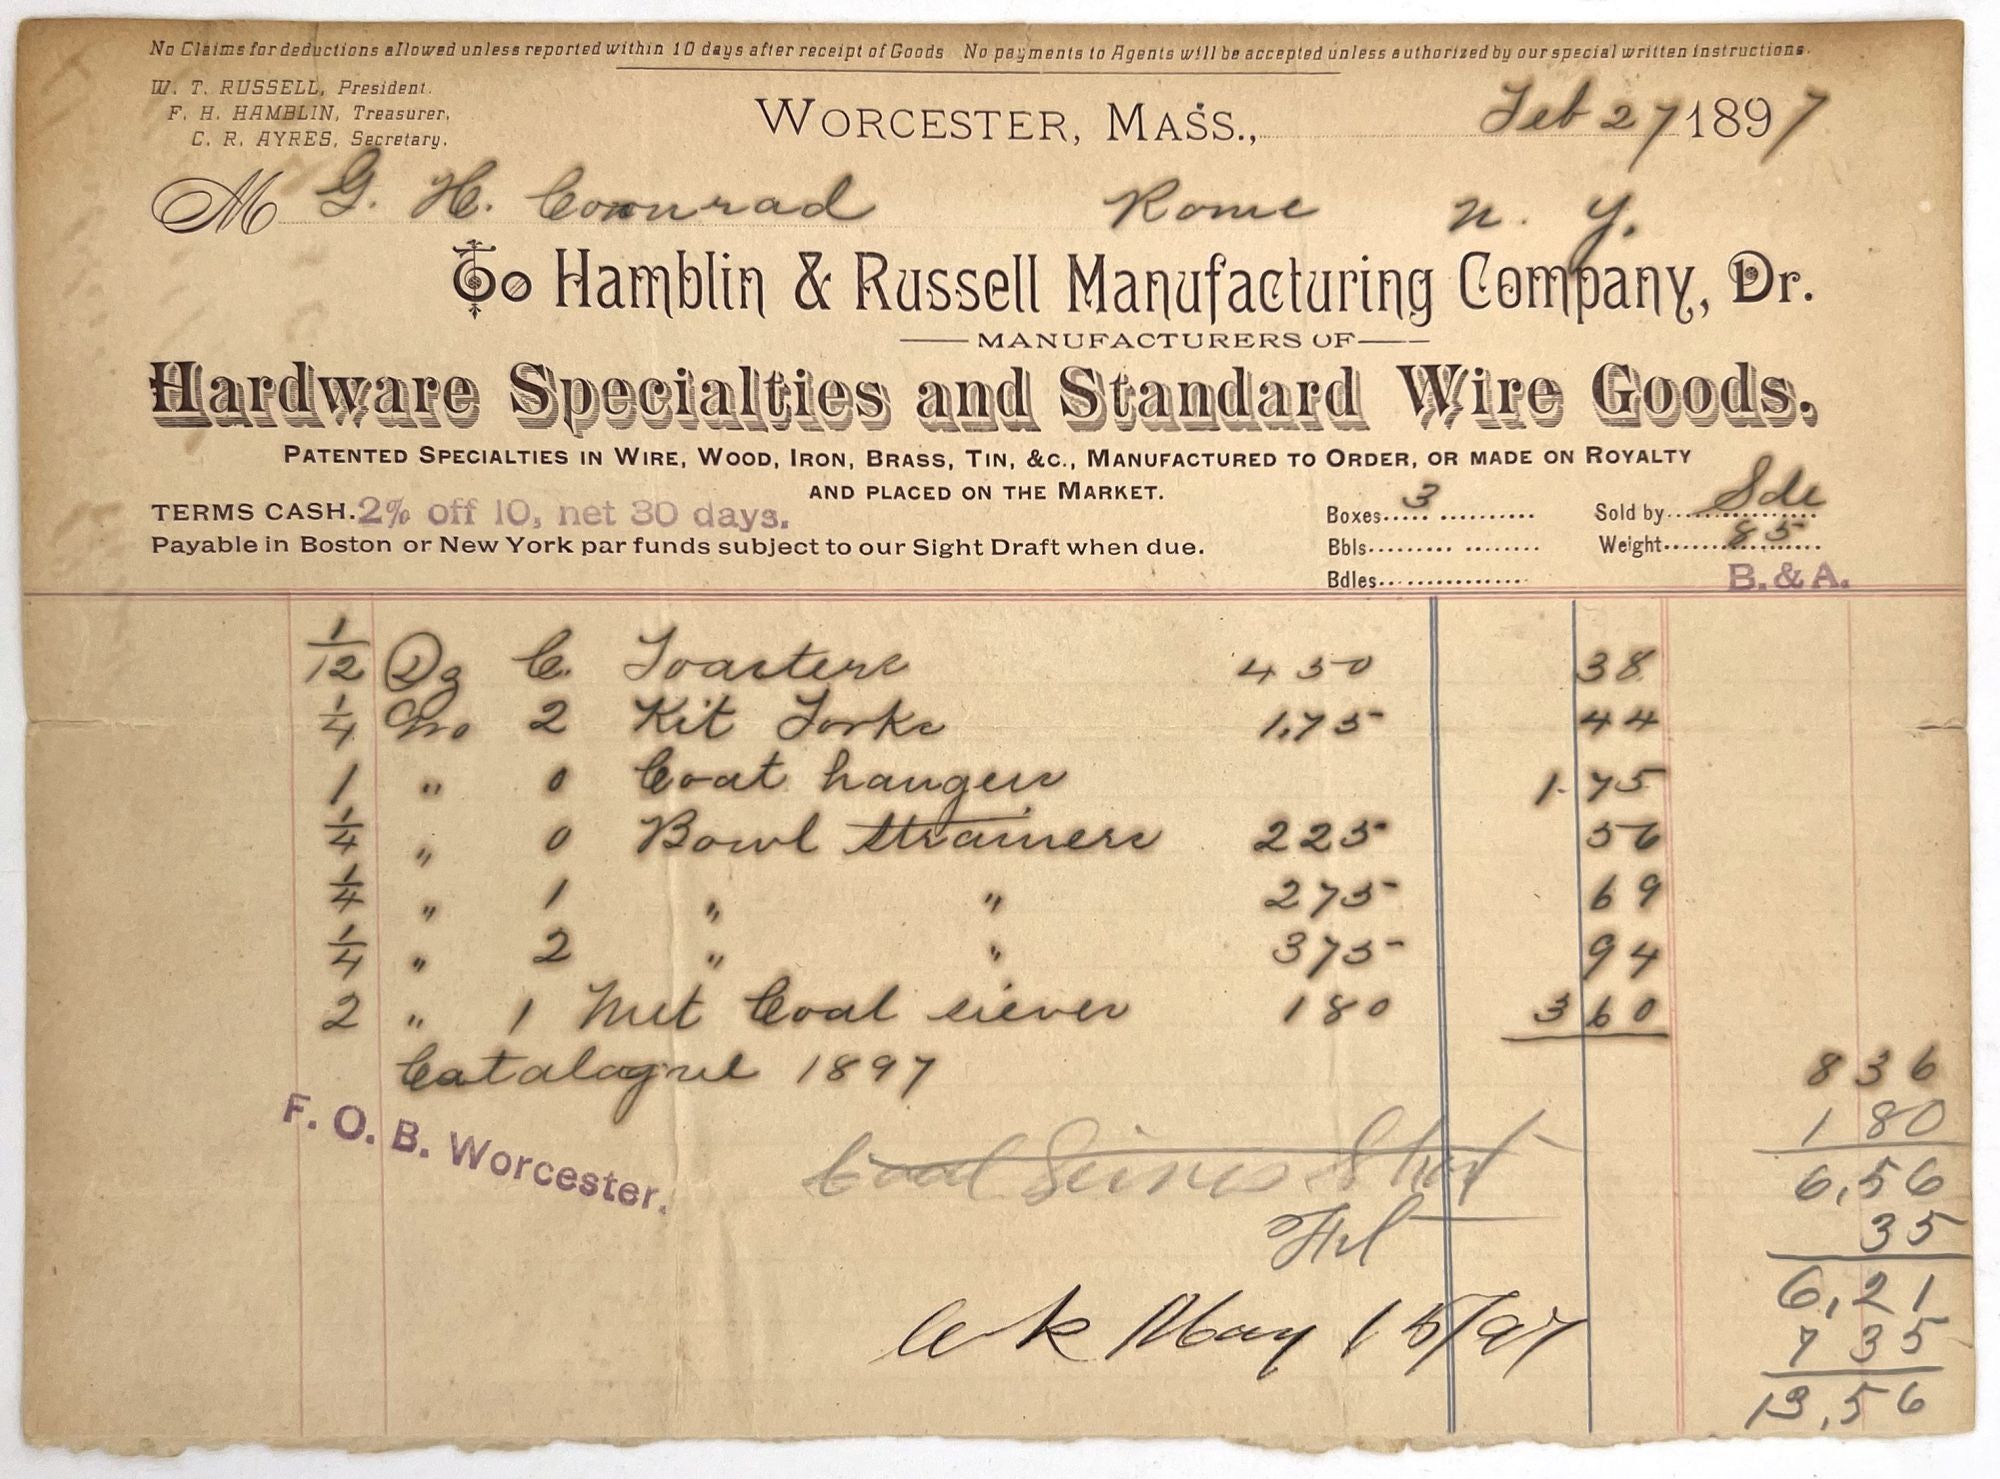 No Claims for deductions allowed unless reported within 10 days after receipt of Goods No payments to Agents will be accepted unless authorized by our special written instructions.
W. T. RUSSELL, President.
F. H. HAMBLIN, Treasurer,
C. R. AYRES, Secretary.
WORCESTER, MASS., Feb 27 1897
M G. H. Connrad Rome N. Y.
To Hamblin & Russell Manufacturing Company, Dr.
MANUFACTURERS OF
Hardware Specialties and Standard Wire Goods.
PATENTED SPECIALTIES IN WIRE, WOOD, IRON, BRASS, TIN, &C., MANUFACTURED TO ORDER, OR MADE ON ROYALTY
AND PLACED ON THE MARKET.
TERMS CASH. 2% off 10, net 30 days.
Payable in Boston or New York par funds subject to our Sight Draft when due.
Boxes 3 Sold by Sde
Bbls Weight 85
Bdles B. & A.
1/12 Dz C. Toasters 4 50 38
1/4 Gro 2 Kit Forks 1.75 44
1 " 0 Coat hangers 1.75
1/4 " 0 Bowl strainers 2 25 56
1/4 " 1 " " 2 75 69
1/4 " 2 " " 3 75 94
2 " 1 Coal sieves 1 80 3 60
Catalogue 1897
8 36
F. O. B. Worcester.
1 80
Coal Seives Short
6,56
35
6,21
7 35
13,56
May 15/97